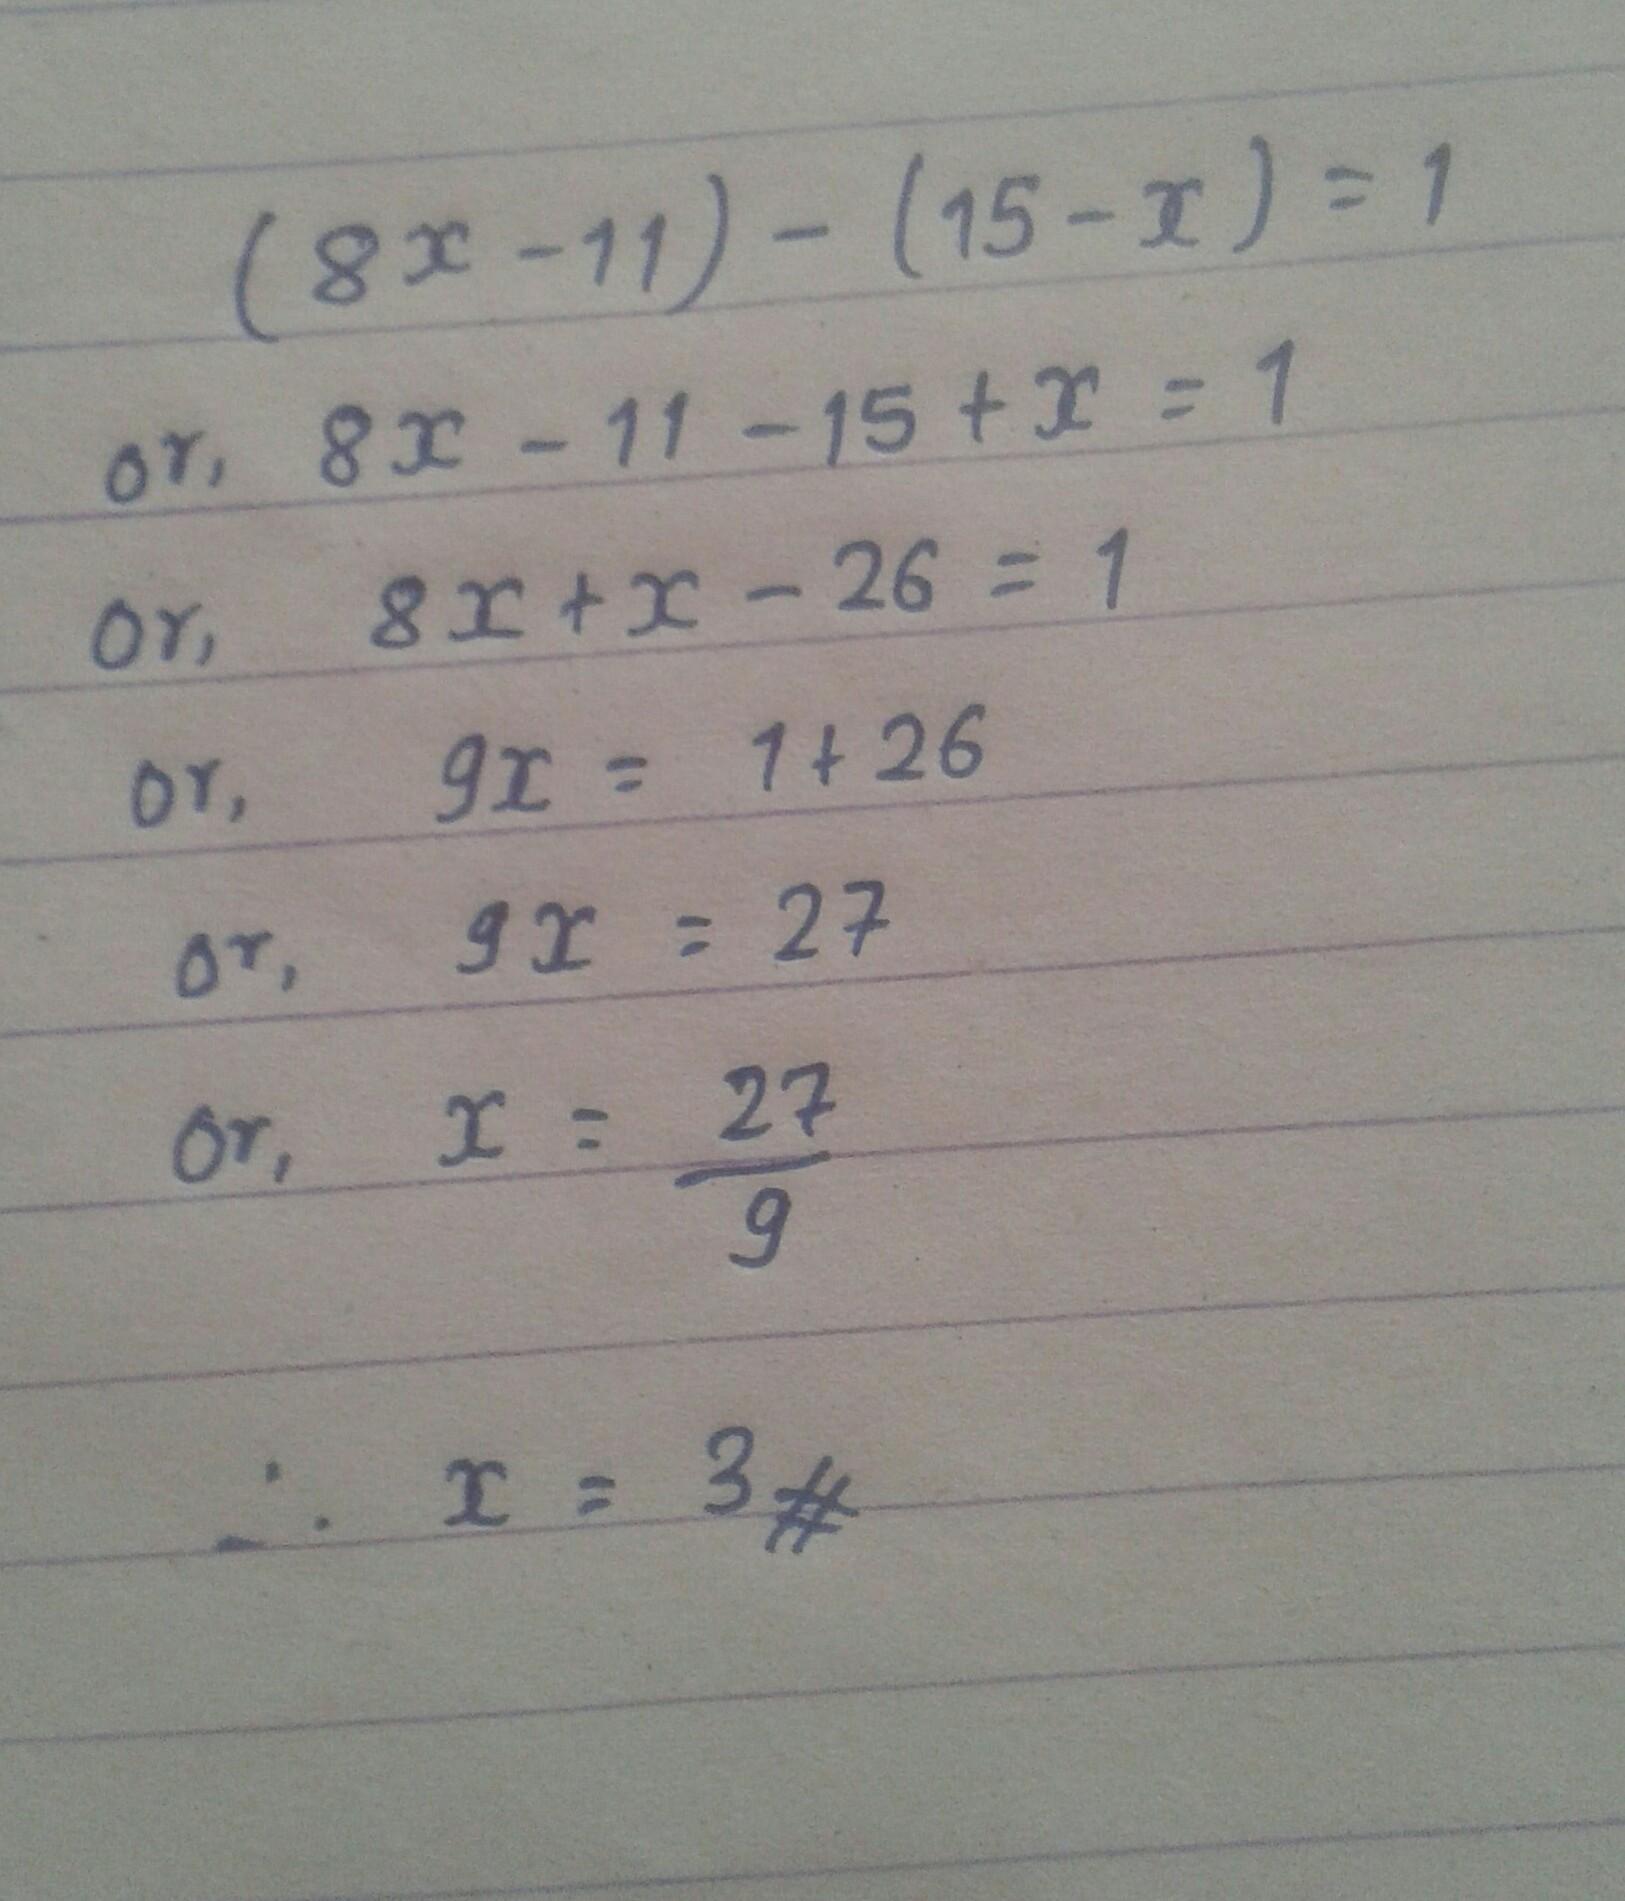 (8x - 11) - (15 - x) = 1
or, 8x - 11 - 15 + x = 1
or, 8x + x - 26 = 1
or, 9x = 1 + 26
or, 9x = 27
or, x = 27/9
∴ x = 3 #